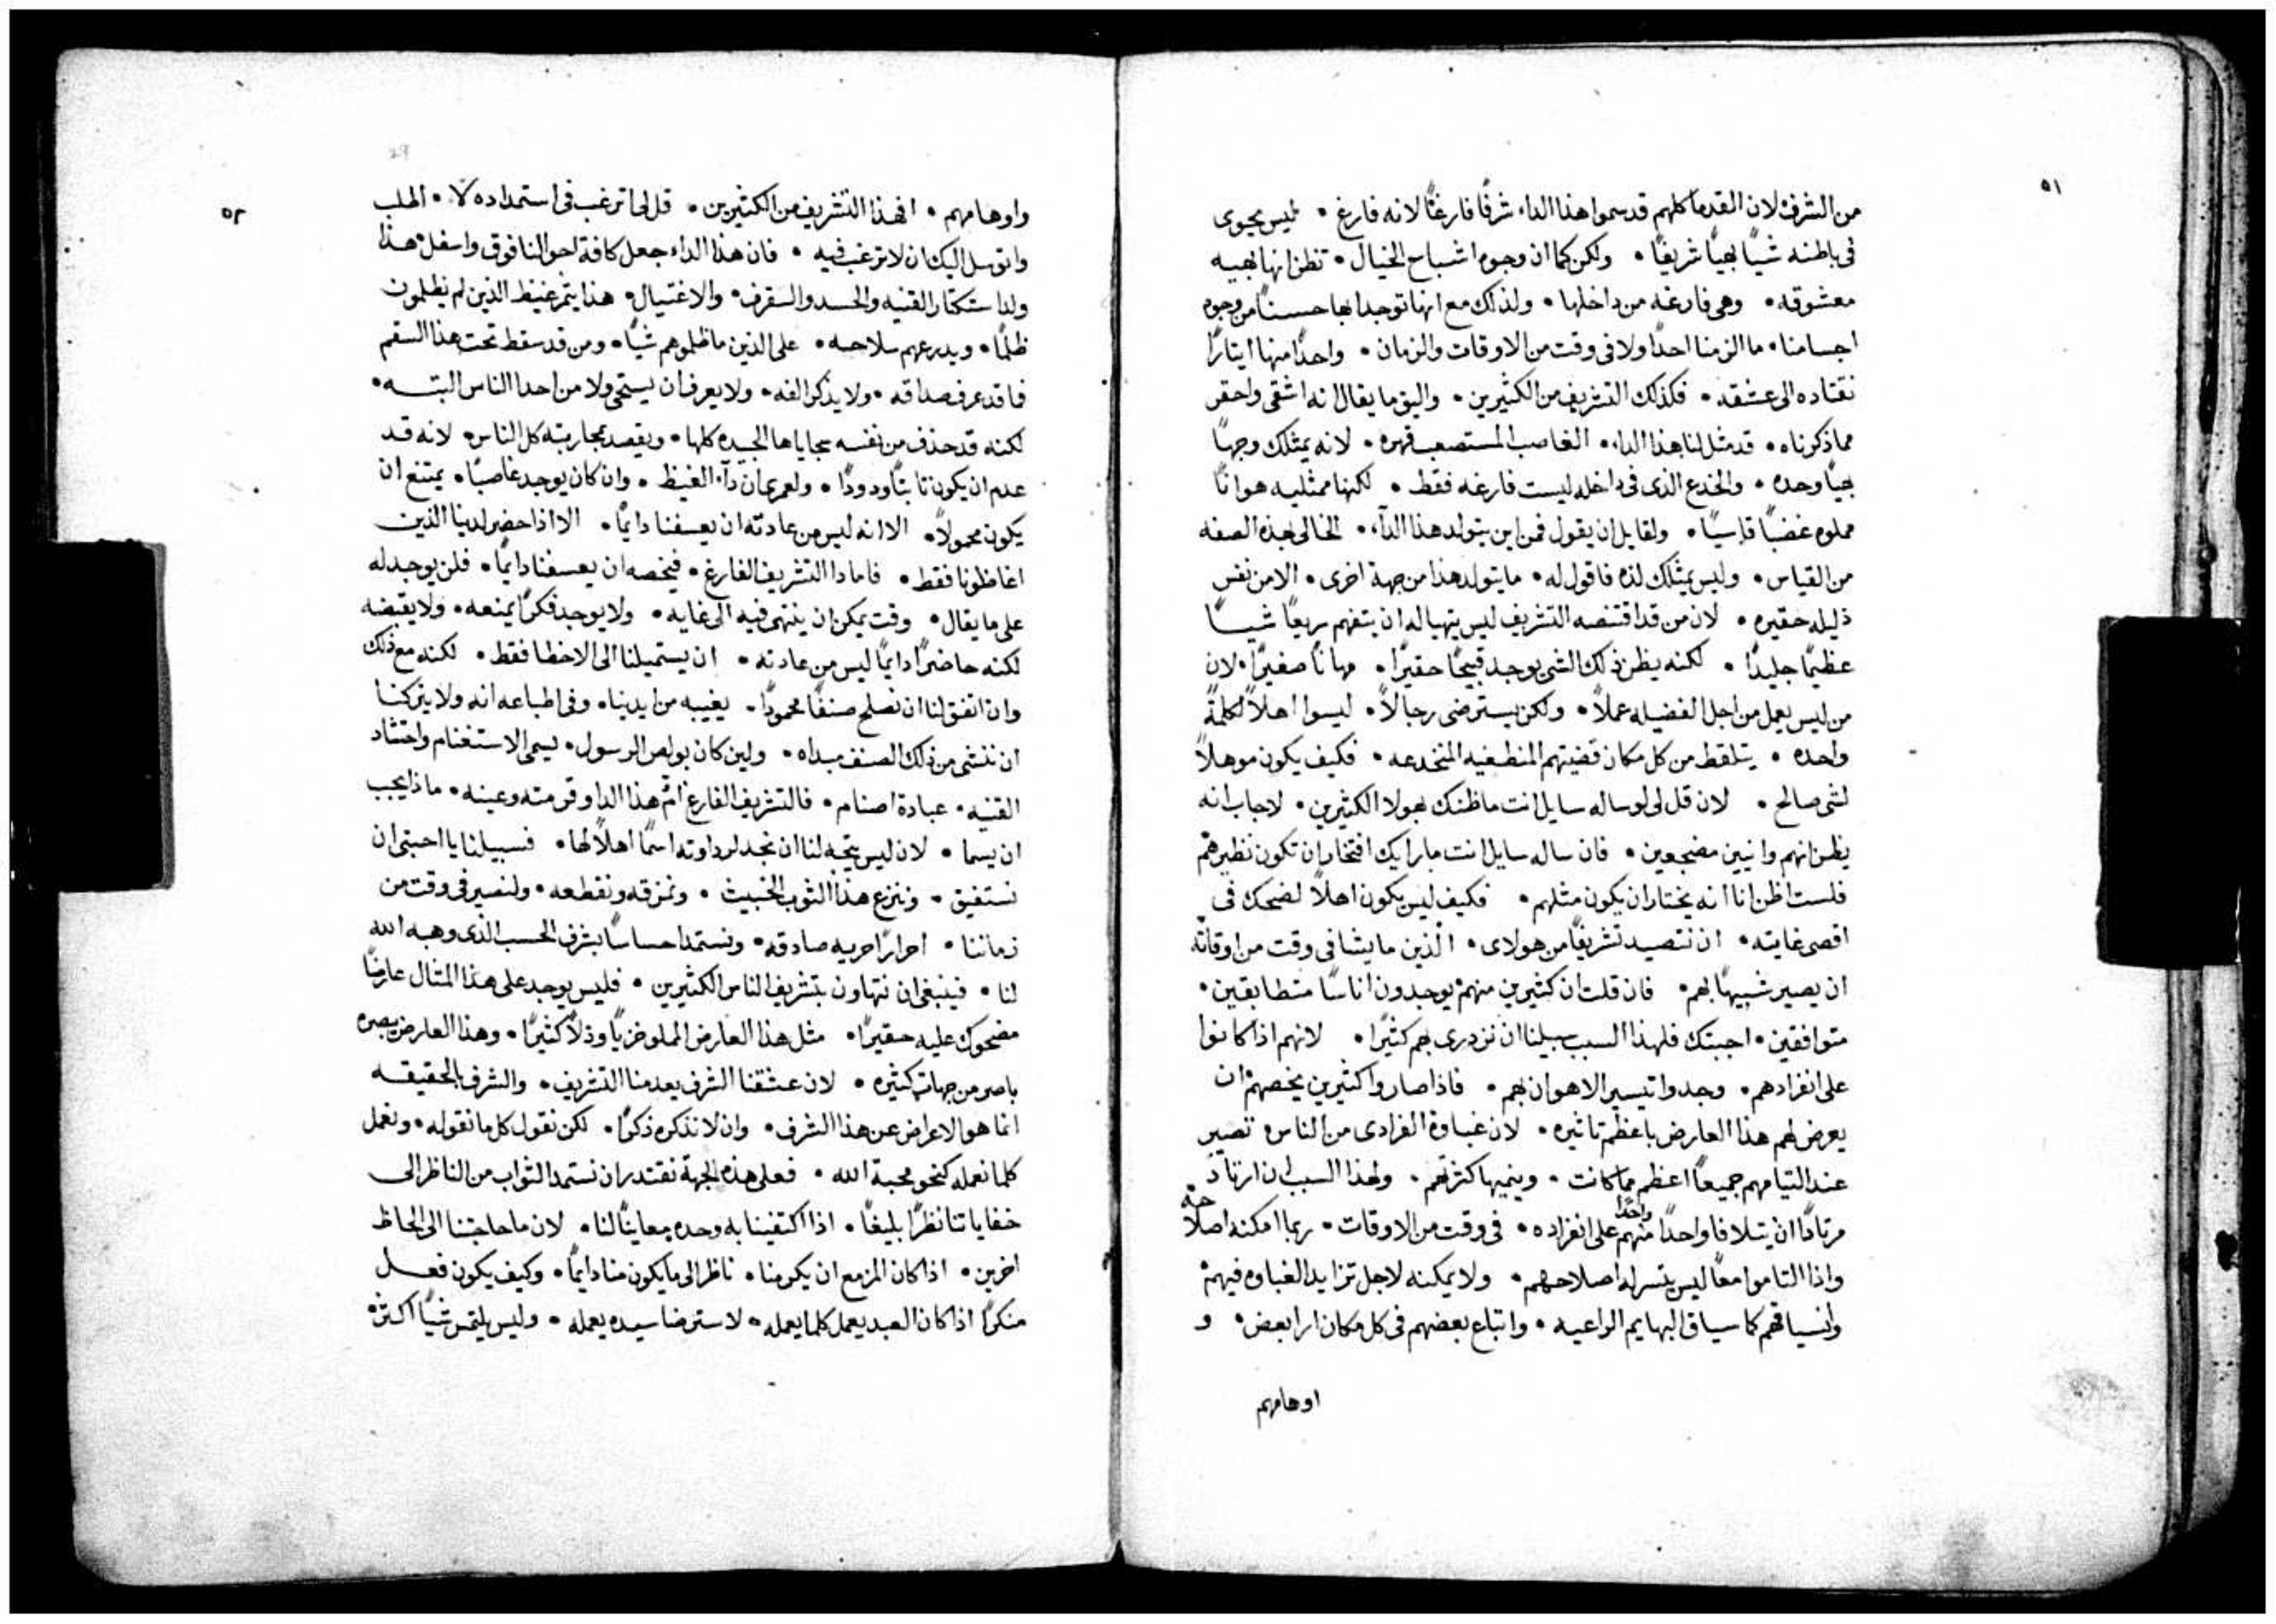 ٥١
من الشرف لان القدما كلهم قد سموا هذا الداء شرفًا فارغًا لانه فارغ • ليس يحوى
فى باطنه شيًا بهيًا شريفًا • ولكن كما ان وجوه اشباح الخيال • تظن انها بهيه
معشوقه • وهى فارغه من داخلها • ولذلك مع انها توجد ابها حسنًا من وجوه
اجسامنا • ما الزمنا احدًا ولا فى وقت من الاوقات والزمان • واحدًا منها ايثارًا
نقتاده الى عشقه • فكذلك التشريف من الكثيرين • واليق ما يقال انه اشقى واحقر
مما ذكرناه • قد مثل لنا هذا الداء • الغاصب المستصعب قهره • لانه يمتلك وجهًا
بهيًا وحده • والخدع الذى فى داخله ليست فارغه فقط • لكنها ممثليه هوانًا
مملوه غضبًا قاسيًا • ولقايل ان يقول فمن اين يتولد هذا الدآء • الخالى بهذه الصفه
من القياس • وليس يمتلك لذه فاقول له • ما يتولد هذا من جهة اخرى • الا من نفس
ذليله حقيره • لان من قد اقتنصه التشريف ليس يتهيا له ان يتفهم سريعًا شيـًا
عظيمًا جليدًا • لكنه يظن ذلك الشى يوجد قبيحًا حقيرًا • مهانًا صغيرًا • لان
من ليس يعمل من اجل الفضيله عملاً • ولكن يسترضى رجالاً • ليسوا اهلاً لكلمةً
واحده • يتلقط من كل مكان قضيتهم المنطغيه المنخدعه • فكيف يكون موهلاً
لشى صالح • لان قل لى لو ساله سايل انت ما ظنك بهولا الكثيرين • لاجاب انه
يظن انهم وانيين مضجعين • فان ساله سايل انت ما رايك افتختار ان تكون نظيرهم
فلست اظن انا انه يختار ان يكون مثلهم • فكيف ليس يكون اهلاً لضحك فى
اقصى غايته • ان نتصيد تشريفًا من هولاى • الذين ما يشا فى وقت من اوقاته
ان يصير شبيهًا بهم • فان قلت ان كثيرين منهم يوجدون اناسًا متطابقين •
متوافقين • اجبتك فلهذا السبب سبيلنا ان نزدرى بهم كثيرًا • لانهم اذا كانوا
على انفرادهم • وجدوا تيسير الاهوان بهم • فاذا صاروا كثيرين يخصهم ان
يعرض لهم هذا العارض باعظم تاثيره • لان غباوة الفرادى من الناس تصير
عند التيامهم جميعًا اعظم مما كانت • وينميها كثرتهم • ولهذا السبب ان ارتاد
مرتادًا ان يتلافا واحدًا واحدًا منهم على انفراده • فى وقت من الاوقات • ربما امكنه اصلاحه
واذا التاموا معًا ليس يتسر له اصلاحهم • ولا يمكنه لاجل تزايد الغباوه فيهم
وانسياقهم كما سياق البهايم الراعيه • واتباع بعضهم فى كل مكان ارا بعض • و
اوهامهم
٥٢
واوهامهم • افهذا التشريف من الكثيرين • قل لى اترغب فى استمداده لا • اطلب
واتوسل اليك ان لا ترغب فيه • فان هذا الداء جعل كافة احوالنا فوق واسفل هذا
ولد استكثار القنيه والحسد والسقرف • والاغتيال • هذا يتمر غيظ الذين لم يظلمون
ظلمًا • ويدرعهم سلاحه • على الذين ما ظلموهم شيًا • ومن قد سقط تحت هذا السقم
فما قد عرف صداقه • ولا يذكر الفه • ولا يعرف ان يستحى ولا من احد الناس البتـه •
لكنه قد حذف من نفسه سجاياها الجيده كلها • ويقصد بمحاربته كل الناس • لانه قد
عدم ان يكون ثابتًا ودودًا • ولعمرى ان دآء الغيظ • وان كان يوجد غاصبًا • يمتنع ان
يكون محمولاً • الا انه ليس من عادته ان يعسفنا دايمًا • الا اذا حضر لدينا الذين
اغاظونا فقط • فاما دا التشريف الفارغ • فيخصه ان يعسفنا دايمًا • فلن يوجد له
على ما يقال • وقت يمكن ان ينتهى فيه الى غايه • ولا يوجد فكرًا يمنعه • ولا يقبضه
لكنه حاضرًا دايمًا ليس من عادته • ان يستميلنا الى الاخطا فقط • لكنه مع ذلك
وان اتفق لنا ان نصلح صنفًا محمودًا • يغيبه من ايدينا • وفى اطباعه انه ولا يتركنا
ان ننشى من ذلك الصنف مبداه • ولين كان بولص الرسول • يسمى الاستغنام واحتشاد
القنيه • عبادة اصنام • فالتشريف الفارغ ام هذا الدا وقرمته وعينه • ماذا يجب
ان يسما • لان ليس يتجه لنا ان نجد لرداوته اسمًا اهلاً لها • فسبيلنا يا احبتى ان
نستفيق • وننزع هذا الثوب الخبيث • ونمزقه ونقطعه • ولنصير فى وقت من
زماننا • احرارًا حريه صادقه • ونستمد احساسًا بشرف الحسب الذى وهبه الله
لنا • فينبغى ان نتهاون بتشريف الناس الكثيرين • فليس يوجد على هذا المثال عارضًا
مضحوك عليه حقيرًا • مثل هذا العارض المملو خزيًا وذلاً كثيرًا • وهذا العارض يبصره
باصر من جهات كثيره • لان عشقنا الشرف يعدمنا التشريف • والشرف بالحقيقه
انما هو الاعراض عن هذا الشرف • وان لا نذكره ذكرًا • لكن نقول كل ما نقوله • ونعمل
كلما نعمله كنحو محبة الله • فعلى هذه الجهة نقتدر ان نستمد الثواب من الناظر الى
خفاياتنا نظرًا بليغًا • اذا اكتفينا به وحده معاينًا لنا • لان ما حاجتنا الى الحاظ
اخرين • اذا كان المزمع ان يكرمنا • ناظر الى ما يكون منا دايمًا • وكيف يكون فعل
منكرًا اذا كان العبد يعمل كلما يعمله • لاسترضا سيده يعمله • وليس يلتمس شيًا اكثر